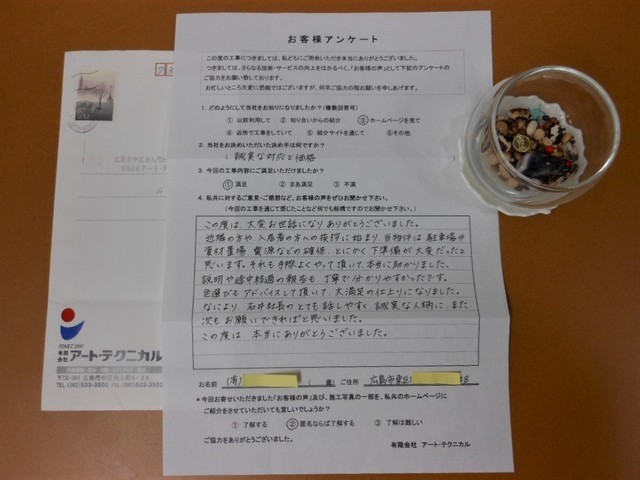 お客様アンケート
この度の工事につきましては、私どもにご用命いただき本当にありがとうございました。
つきましては、さらなる技術・サービスの向上をはかるべく、「お客様の声」として下記のアンケートの
ご協力をお願い致しております。
お忙しいところ大変に恐縮ではございますが、何卒ご協力の程お願いを申しあげます。
1. どのようにして当社をお知りになりましたか?(複数回答可)
① 以前利用して ② 知り合いからの紹介 ③ ホームページを見て
④ 近所で工事をしていて ⑤ 紹介サイトを通じて ⑥その他
2. 当社をお決めいただいた決め手は何ですか?
誠実な対応と価格
3. 今回の工事内容にご満足いただけましたか?
① 満足 ② まあ満足 ③ 不満
4. 私共に対するご意見・ご感想など、お客様の声をぜひお聞かせ下さい。
(今回の工事を通じて感じたことなど何でも結構ですのでお聞かせ下さい。)
この度は、大変お世話になりありがとうございました。
近隣の方や、入居者の方への挨拶に始まり、当物件は駐車場や
資材置場、電源などの確保、とにかく下準備が大変だったと
思います。それも手際よくやって頂いて本当に助かりました。
説明や途中経過の報告も、丁寧で分かりやすかったです。
色選びもアドバイスして頂いて、大満足の仕上りになりました。
なにより、石井社長のとても話しやすく、誠実な人柄に、また
次もお願いできればと思いました。
この度は、本当にありがとうございました。
お名前 (有) ( 歳) ご住所 広島市東区
*今回お寄せいただきました「お客様の声」及び、施工写真の一部を、私共のホームページに
ご紹介をさせていただいても宜しいでしょうか?
① 了解する ② 匿名ならば了解する ③ 了解は難しい
ご協力をありがとうございました。
有限会社 アート・テクニカル
START 2001
有限会社 アート・テクニカル